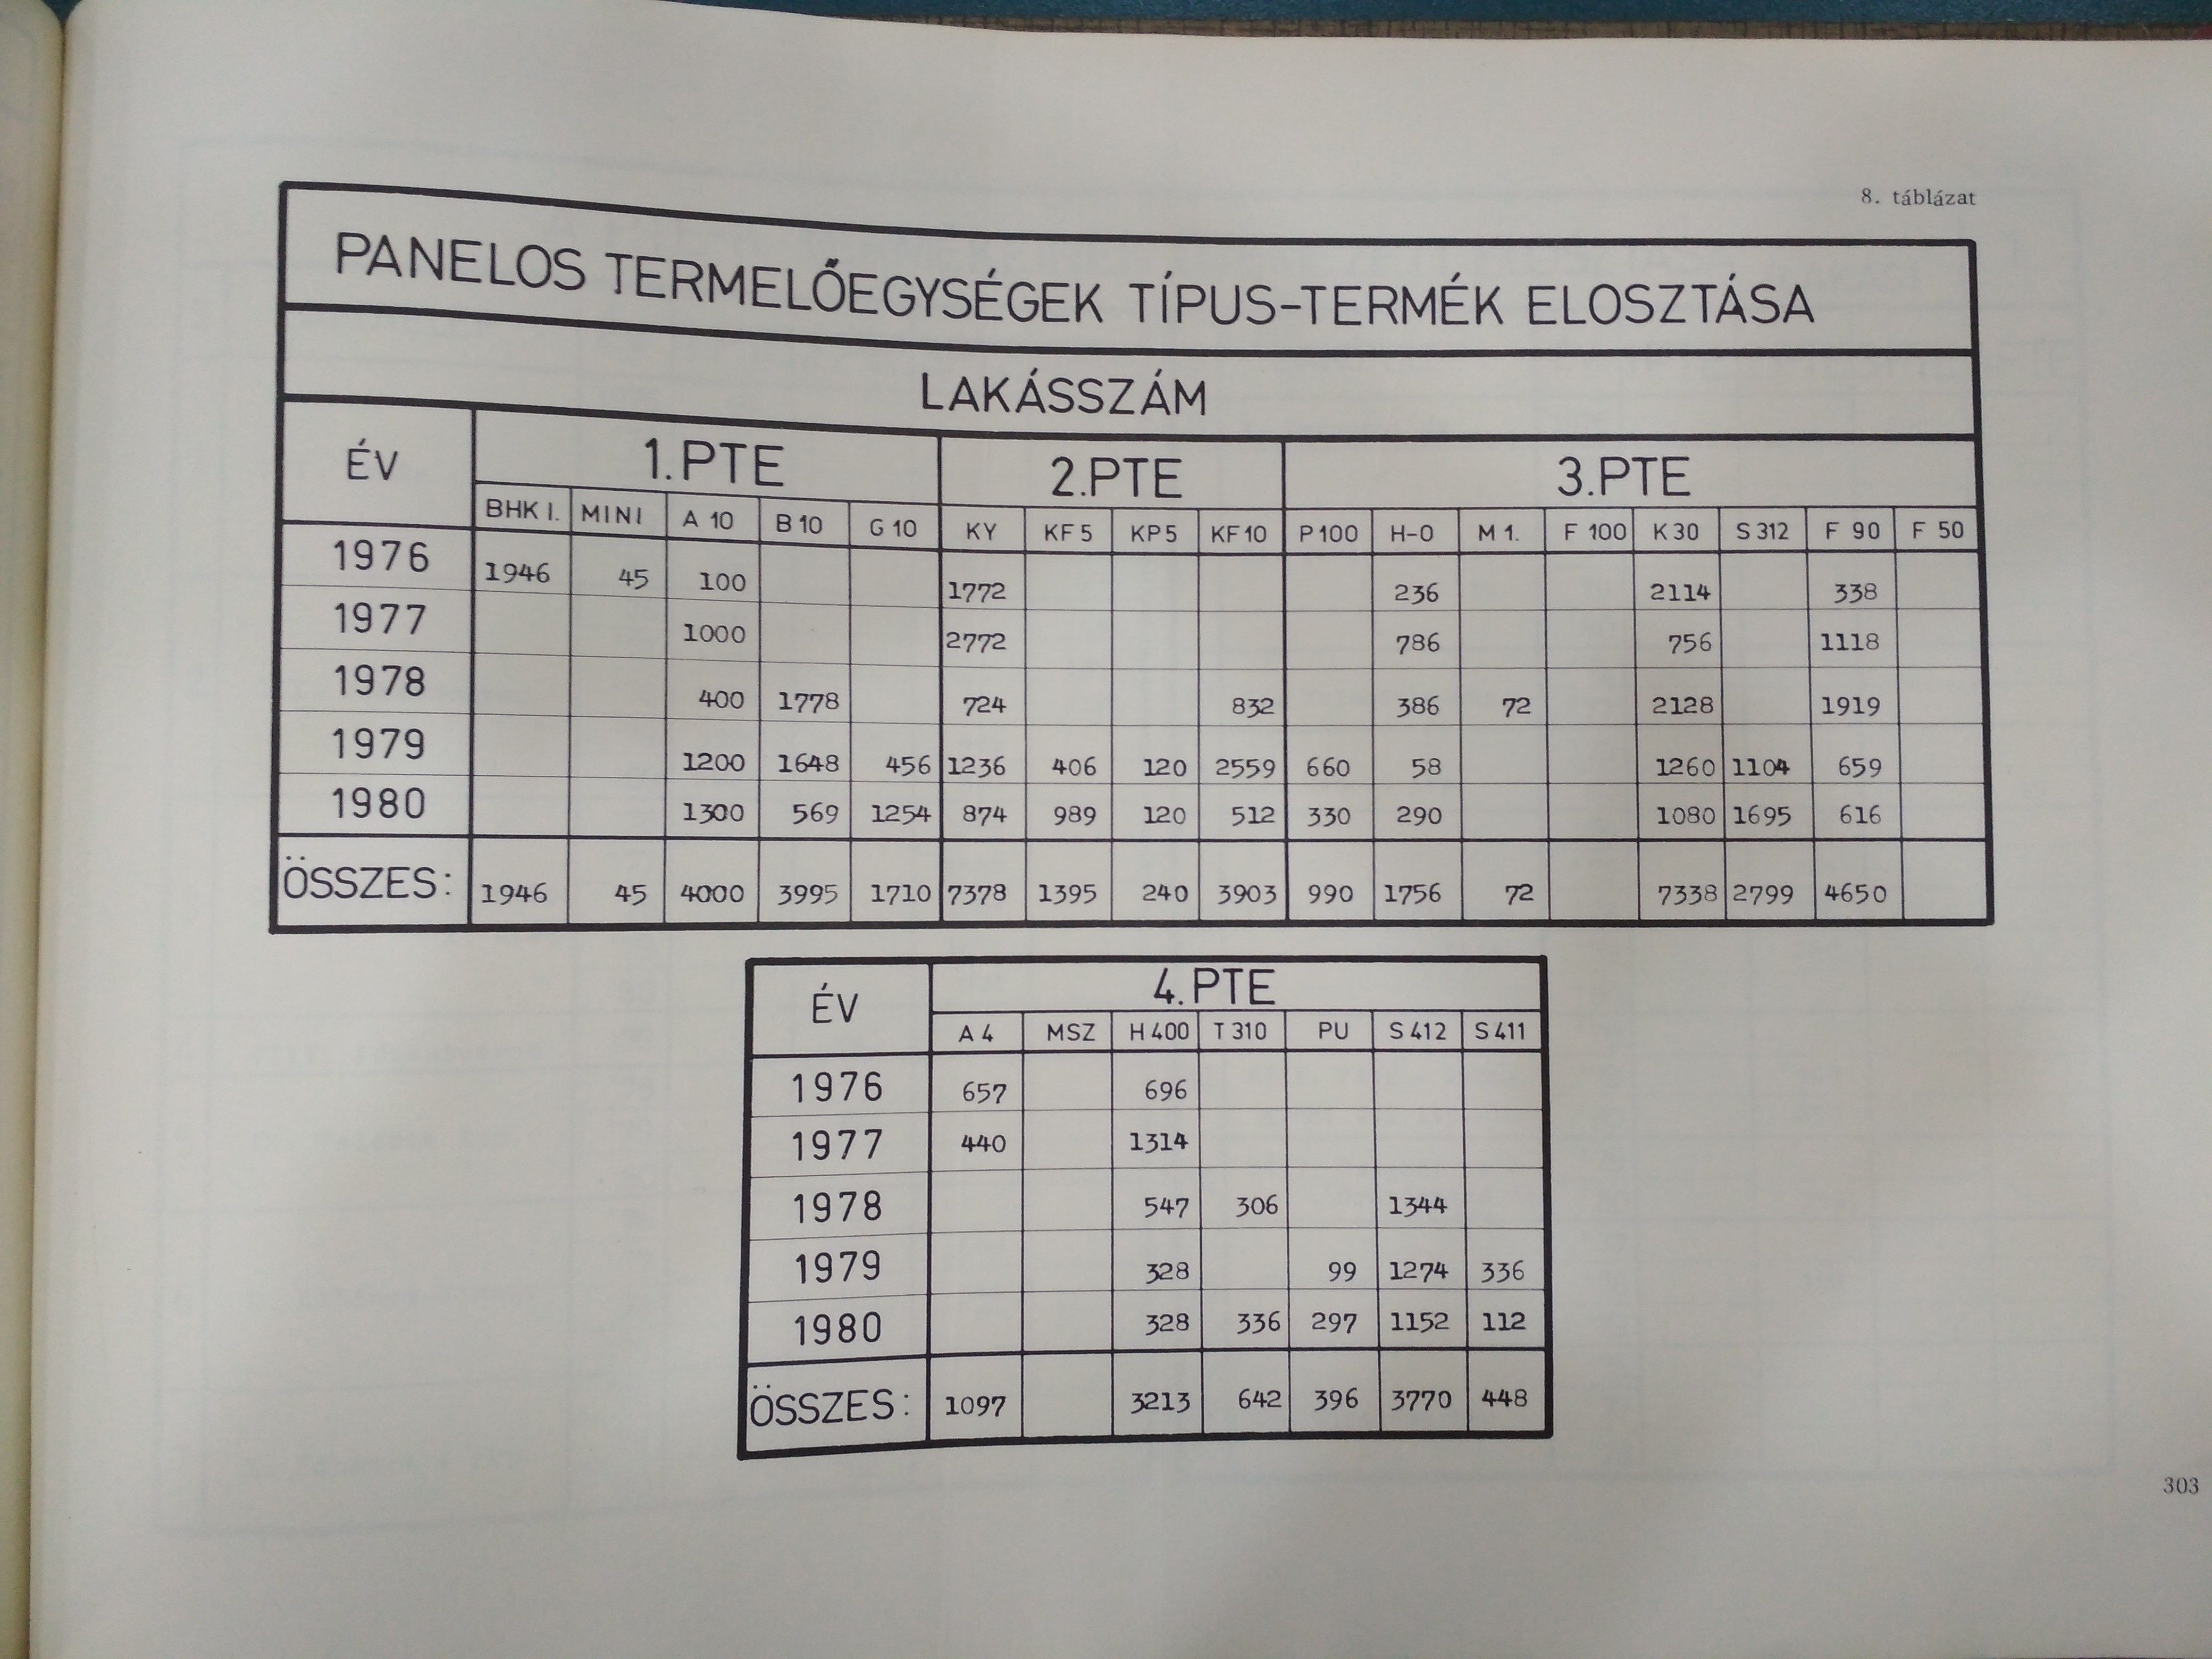 8. táblázat
PANELOS TERMELŐEGYSÉGEK TÍPUS-TERMÉK ELOSZTÁSA
LAKÁSSZÁM
ÉV 1.PTE 2.PTE 3.PTE
BHK I. MINI A 10 B 10 G 10 KY KF 5 KP 5 KF 10 P 100 H-0 M 1. F 100 K 30 S 312 F 90 F 50
1976 1946 45 100 1772 236 2114 338
1977 1000 2772 786 756 1118
1978 400 1778 724 832 386 72 2128 1919
1979 1200 1648 456 1236 406 120 2559 660 58 1260 1104 659
1980 1300 569 1254 874 989 120 512 330 290 1080 1695 616
ÖSSZES: 1946 45 4000 3995 1710 7378 1395 240 3903 990 1756 72 7338 2799 4650
ÉV 4.PTE
A 4 MSZ H 400 T 310 PU S 412 S 411
1976 657 696
1977 440 1314
1978 547 306 1344
1979 328 99 1274 336
1980 328 336 297 1152 112
ÖSSZES: 1097 3213 642 396 3770 448
303